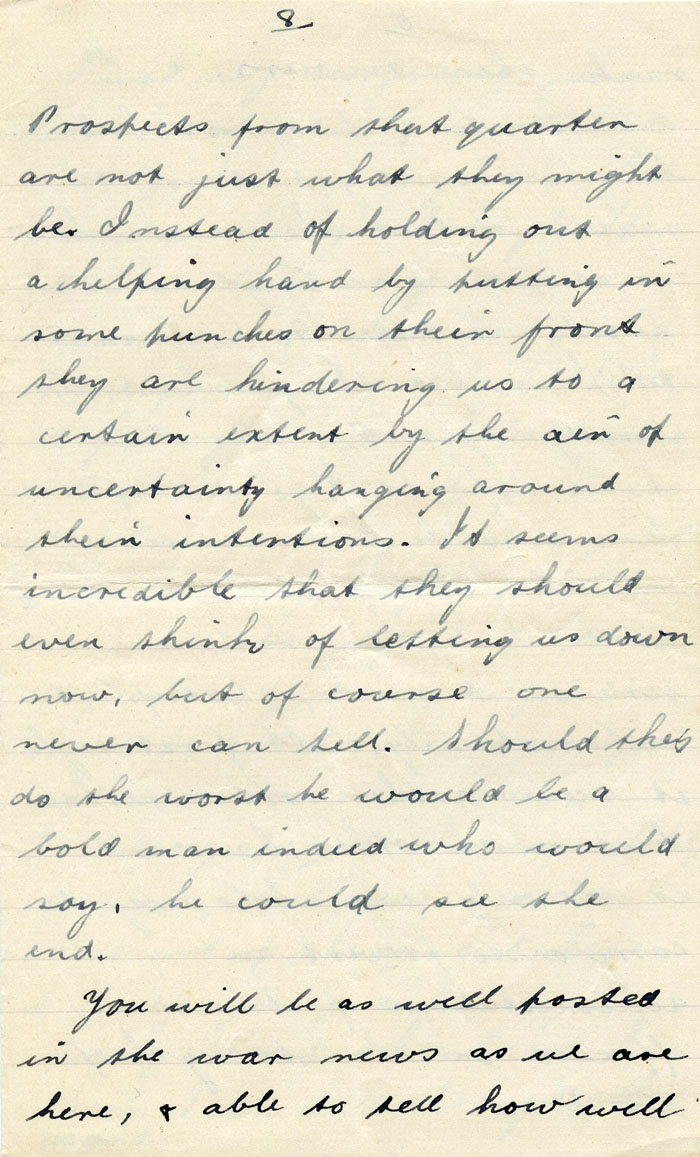 8
Prospects from that quarter
are not just what they might
be. Instead of holding out
a helping hand by putting in
some punches on their front
they are hindering us to a
certain extent by the air of
uncertainty hanging around
their intentions. It seems
incredible that they should
even think of letting us down
now, but of course one
never can tell. Should they
do the worst he would be a
bold man indeed who would
say, he could see the
end.
You will be as well posted
in the war news as we are
here, & able to tell how well